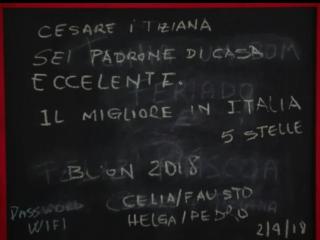 CESARE I TIZIANA
SEI PADRONE DI CASA
ECCELENTE.
IL MIGLIORE IN ITALIA
5 STELLE
BUON 2018
CELIA/FAUSTO
HELGA/PEDRO
PASSWORD
WIFI
2/4/18